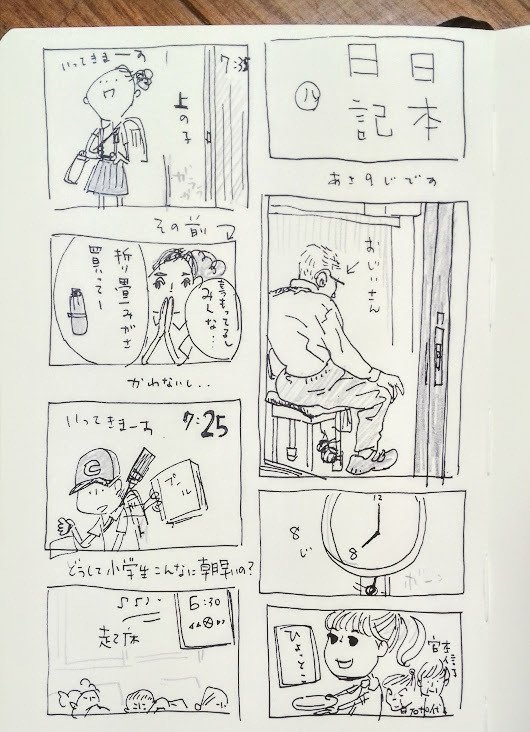 日本
日記
八
あさ8じです
おじいさん
12
8
8じ
ボーン
ひょっとこ
宮本信子
7:35
いってきまーす
上の子
ガラガラ
その前
もうもってるし
みんな…
折り畳みがさ
買ってー
かわないし..
いってきまーす
7:25
C
プール
どうして小学生こんなに朝早いの?
6:30
起床